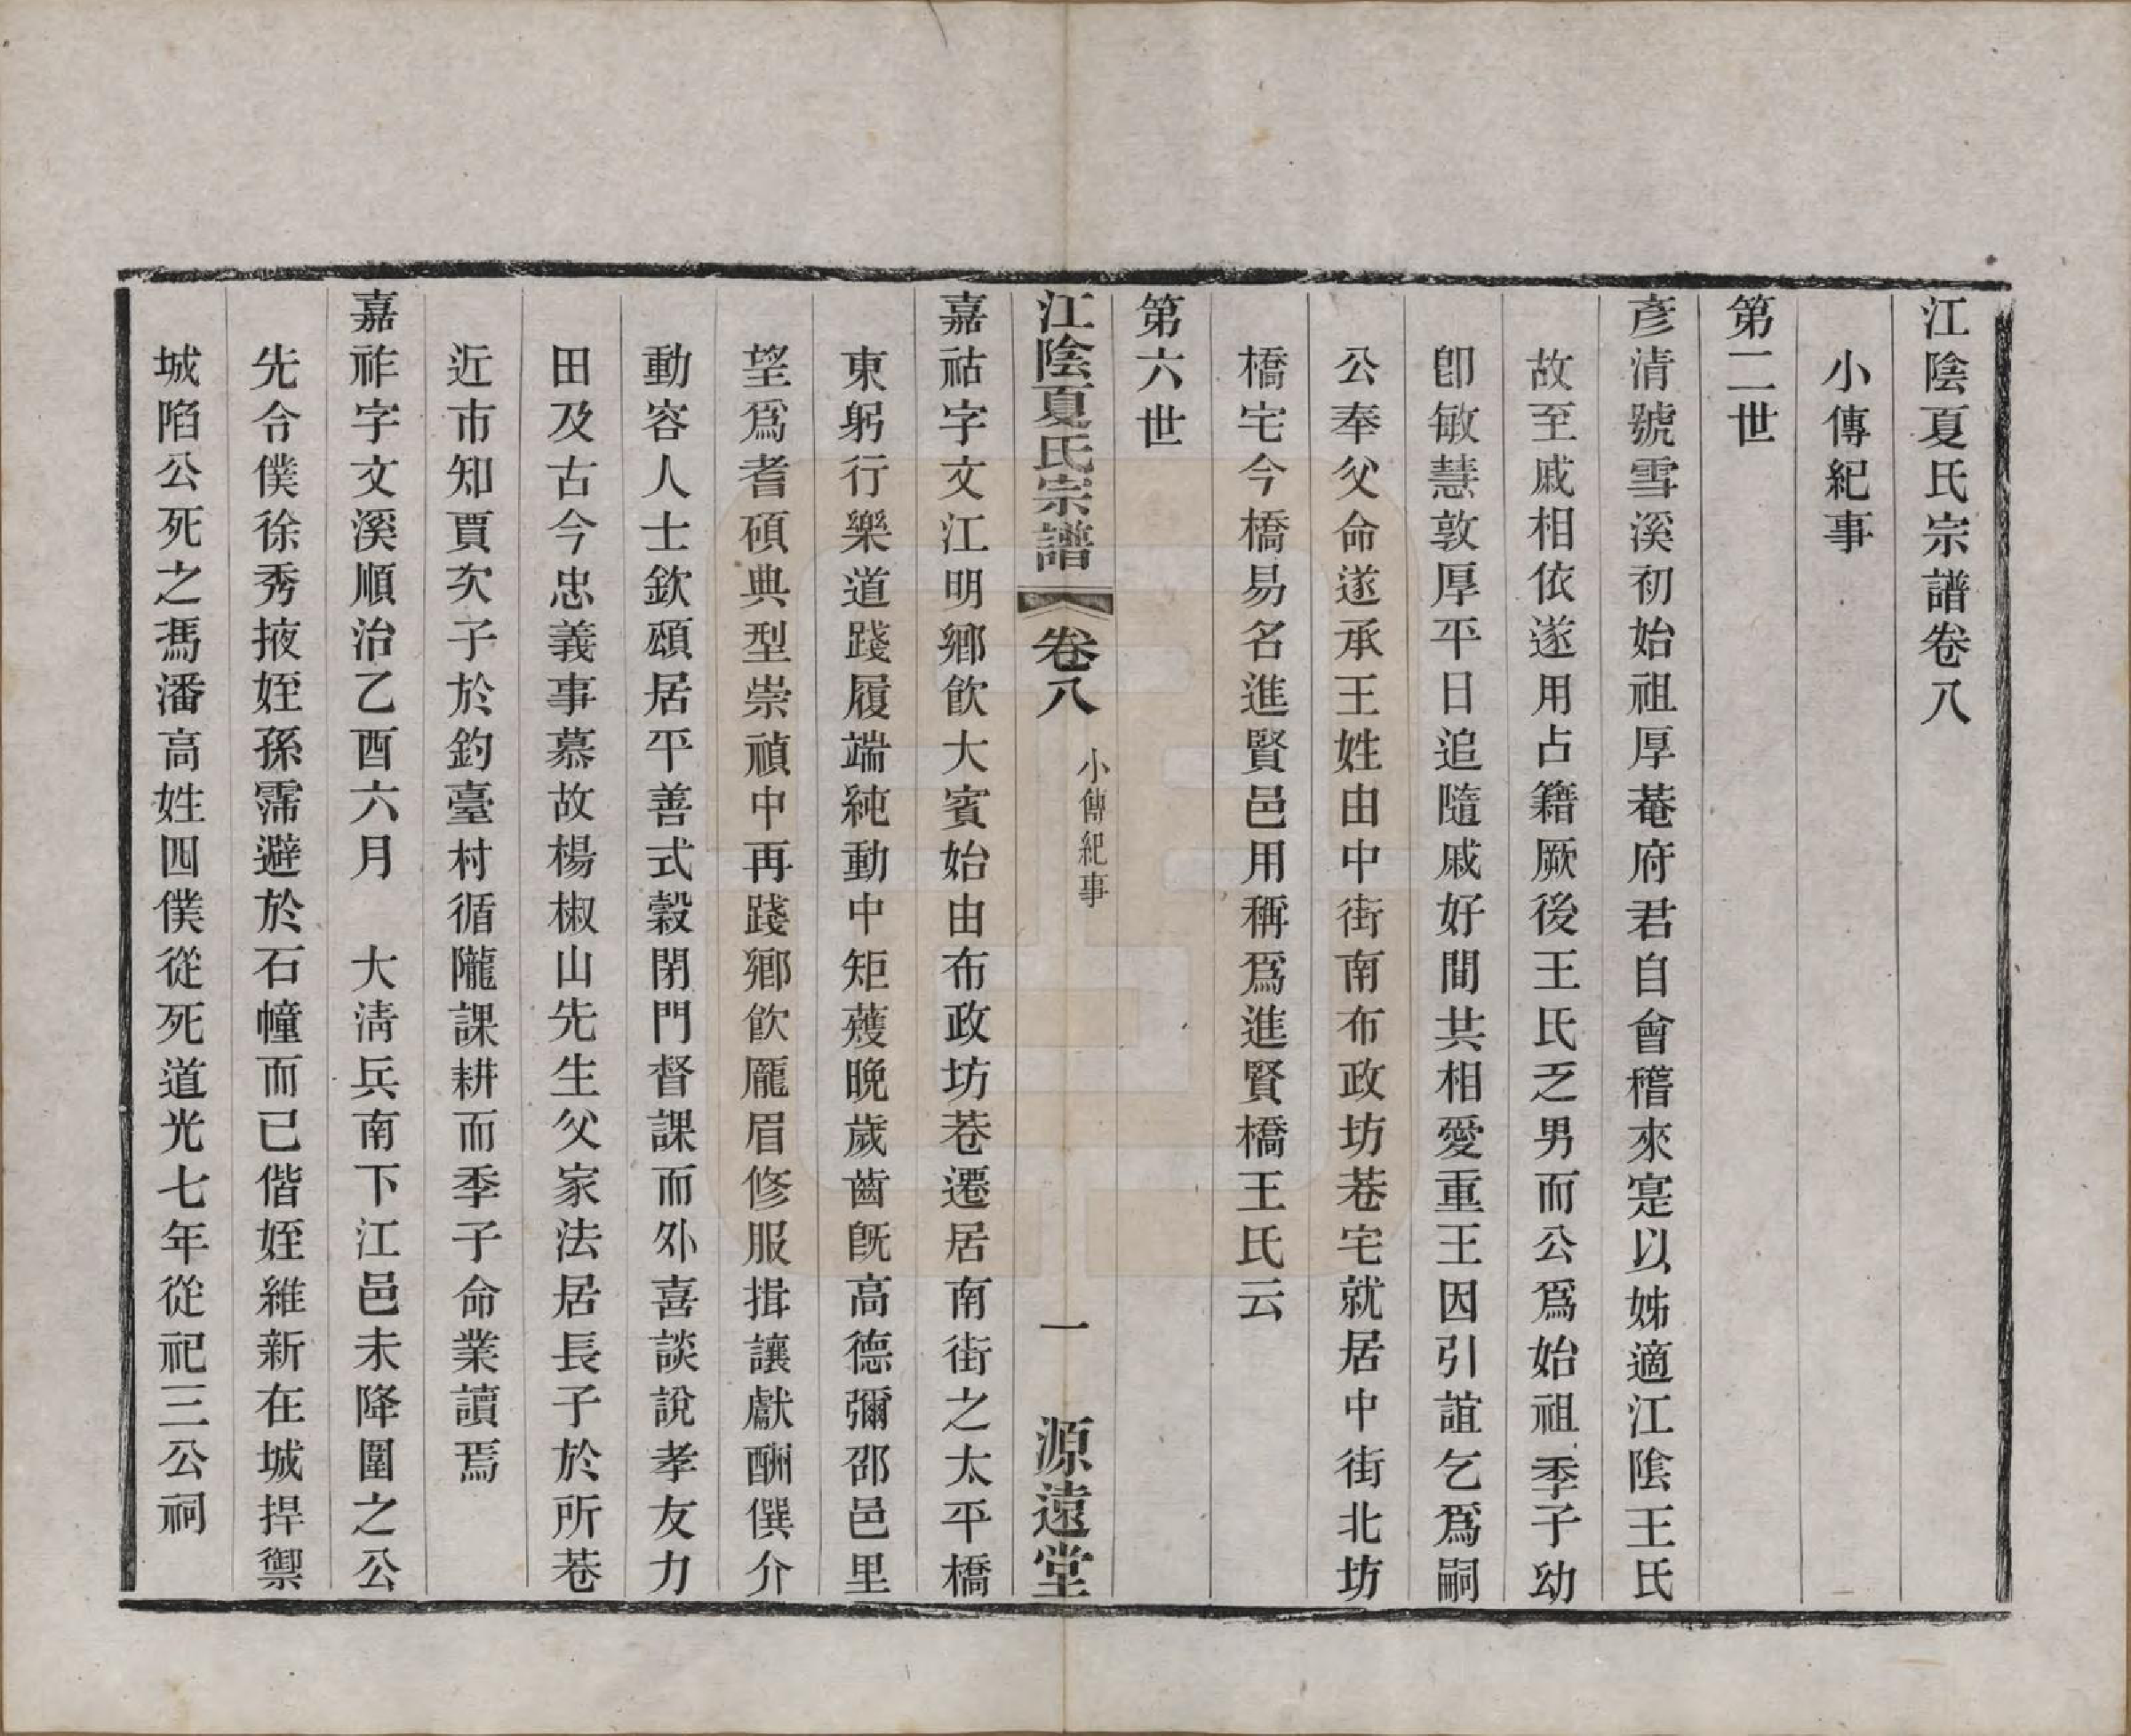 江陰夏氏宗譜卷八
小傳紀事
第二世
彥清號雪溪初始祖厚菴府君自會稽來寔以姊適江陰王氏
故至戚相依遂用占籍厥後王氏乏男而公爲始祖季子幼
卽敏慧敦厚平日追隨戚好間共相愛重王因引誼乞爲嗣
公奉父命遂承王姓由中街南布政坊巷宅就居中街北坊
橋宅今橋易名進賢邑用稱爲進賢橋王氏云
第六世
江陰夏氏宗譜 卷八 小傳紀事 一 源遠堂
嘉祜字文江明鄉飮大賓始由布政坊巷遷居南街之太平橋
東躬行樂道踐履端純動中矩矱晚歲齒旣高德彌邵邑里
望爲耆碩典型崇禎中再踐鄉飮龐眉修服揖讓獻酬僎介
動容人士欽頌居平善式穀閉門督課而外喜談說孝友力
田及古今忠義事慕故楊椒山先生父家法居長子於所巷
近市知賈次子於釣臺村循隴課耕而季子命業讀焉
嘉祚字文溪順治乙酉六月 大淸兵南下江邑未降圍之公
先令僕徐秀掖姪孫霈避於石幢而已偕姪維新在城捍禦
城陷公死之馮潘高姓四僕從死道光七年從祀三公祠